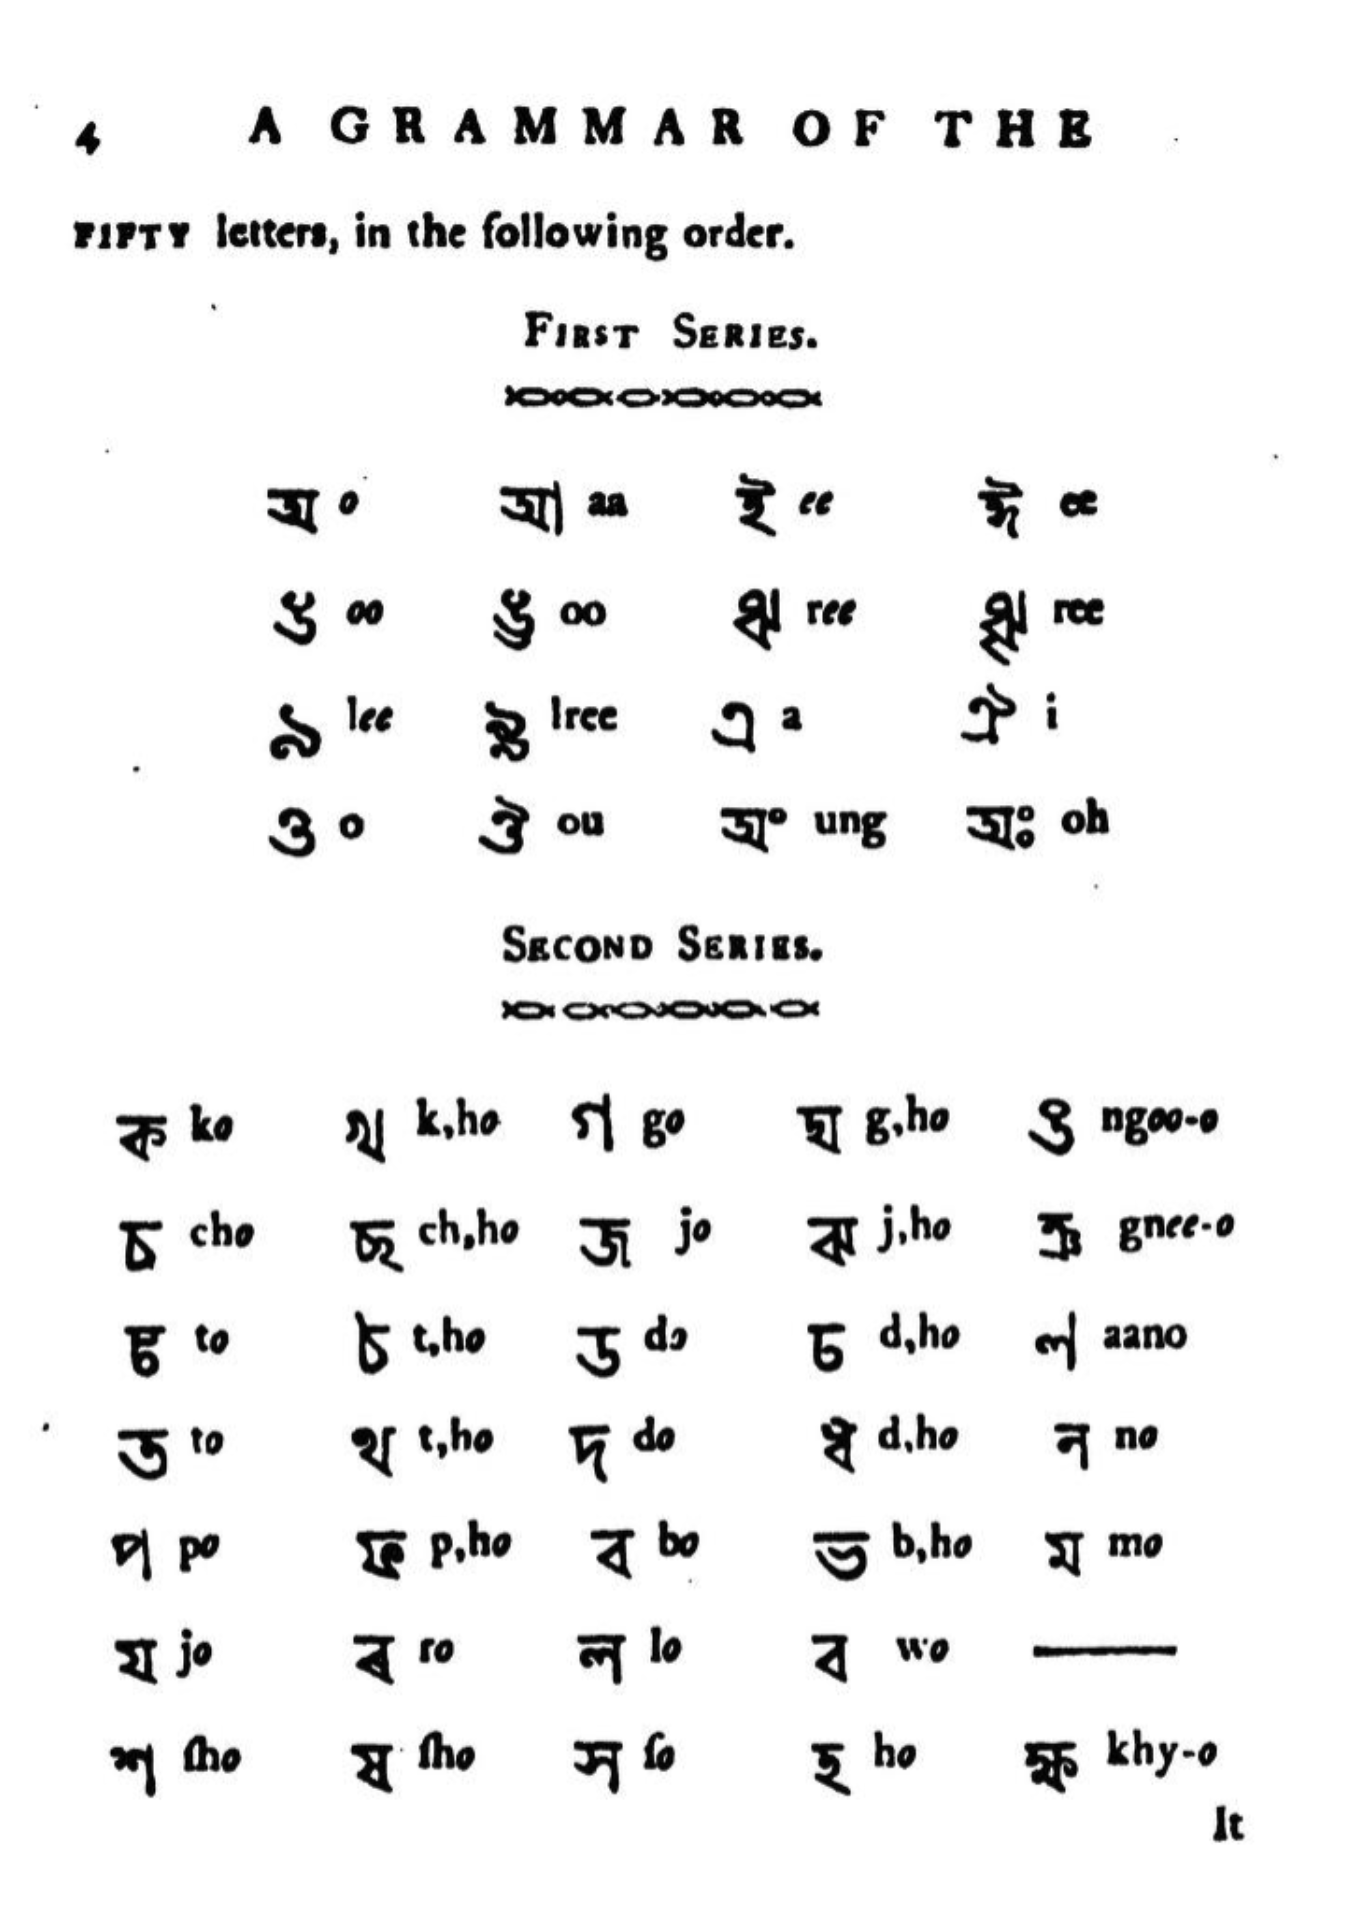 4 A GRAMMAR OF THE
FIFTY letters, in the following order.
FIRST SERIES.
অ o আ aa ই ee ঈ ee
উ oo ঊ oo ঋ ree ৠ ree
ঌ lee ৡ lree এ a ঐ i
ও o ঔ ou অং ung অঃ oh
SECOND SERIES.
ক ko খ k,ho গ go ঘ g,ho ঙ ngoo-o
চ cho ছ ch,ho জ jo ঝ j,ho ঞ gnee-o
ট to ঠ t,ho ড do ঢ d,ho ণ aano
ত to থ t,ho দ do ধ d,ho ন no
প po ফ p,ho ব bo ভ b,ho ম mo
য jo ৰ ro ল lo ব wo
শ ſho ষ ſho স ſo হ ho ক্ষ khy-o
It